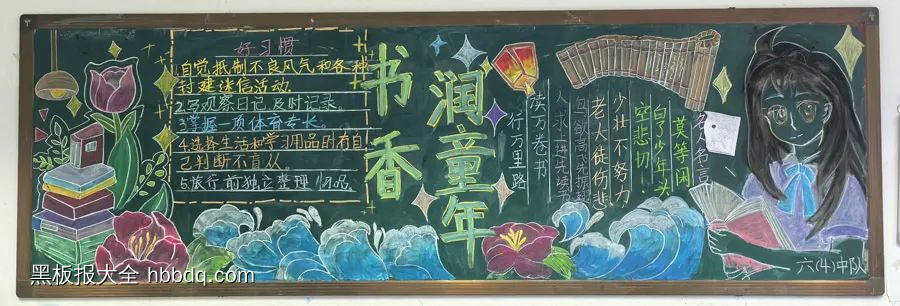 好习惯
1.自觉抵制不良风气和各种
封建迷信活动.
2.写观察日记,及时记录。
3.掌握一项体育专长。
4.选择生活和学习用品时有自
己判断不盲从。
5.旅行前独立整理物品。
书香
润童年
名人名言
莫等闲
白了少年头
空悲切
少壮不努力
老大徒伤悲
鸟欲高飞先振翅
人求上进先读书
读万卷书
行万里路
六(4)中队
黑板报大全 hbbdq.com